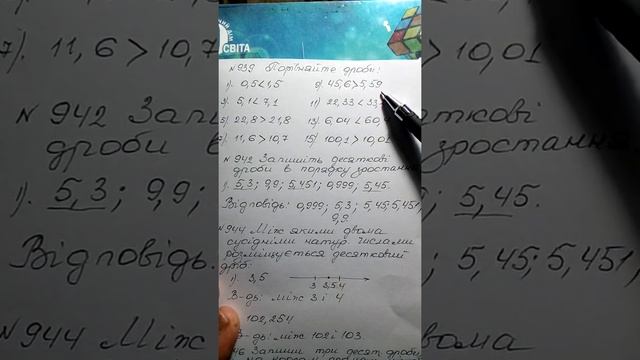 СВІТА
№ 939 Порівняйте дроби:
1). 0,5<1,5 9). 45,6>5,59
3). 5,1<7,1 11) 22,33<33,
5). 22,8>21,8 13). 6,04<60,4
7). 11,6>10,7 15) 100,1>10,01
№ 942 Запишіть десяткові
дроби в порядку зростання
1). 5,3; 9,9; 5,451; 0,999; 5,45.
Відповідь: 0,999; 5,3; 5,45; 5,451;
9,9.
№ 944 Між якими двома
сусідніми натур. числами
розміщується десятковий
дріб:
1). 3,5
3 3,5 4
В-дь: між 3 і 4
102,254
В-дь: між 102 і 103.
Запиши три десят. дроби
7). 11,6>10,7
10,01
№ 942
дроби
1). 5,3;
5,45.
Відповідь:
5,45; 5,451,
№ 944 Між
двома